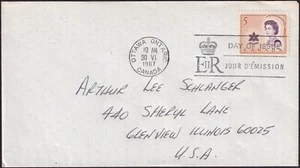 OTTAWA ONTARIO
10 AM
30 VI
1967
CANADA
5
DAY OF ISSUE
EIIR
JOUR D'ÉMISSION
ARTHUR LEE SCHLANGER
440 SHERYL LANE
GLENVIEW ILLINOIS 60025
U.S.A.